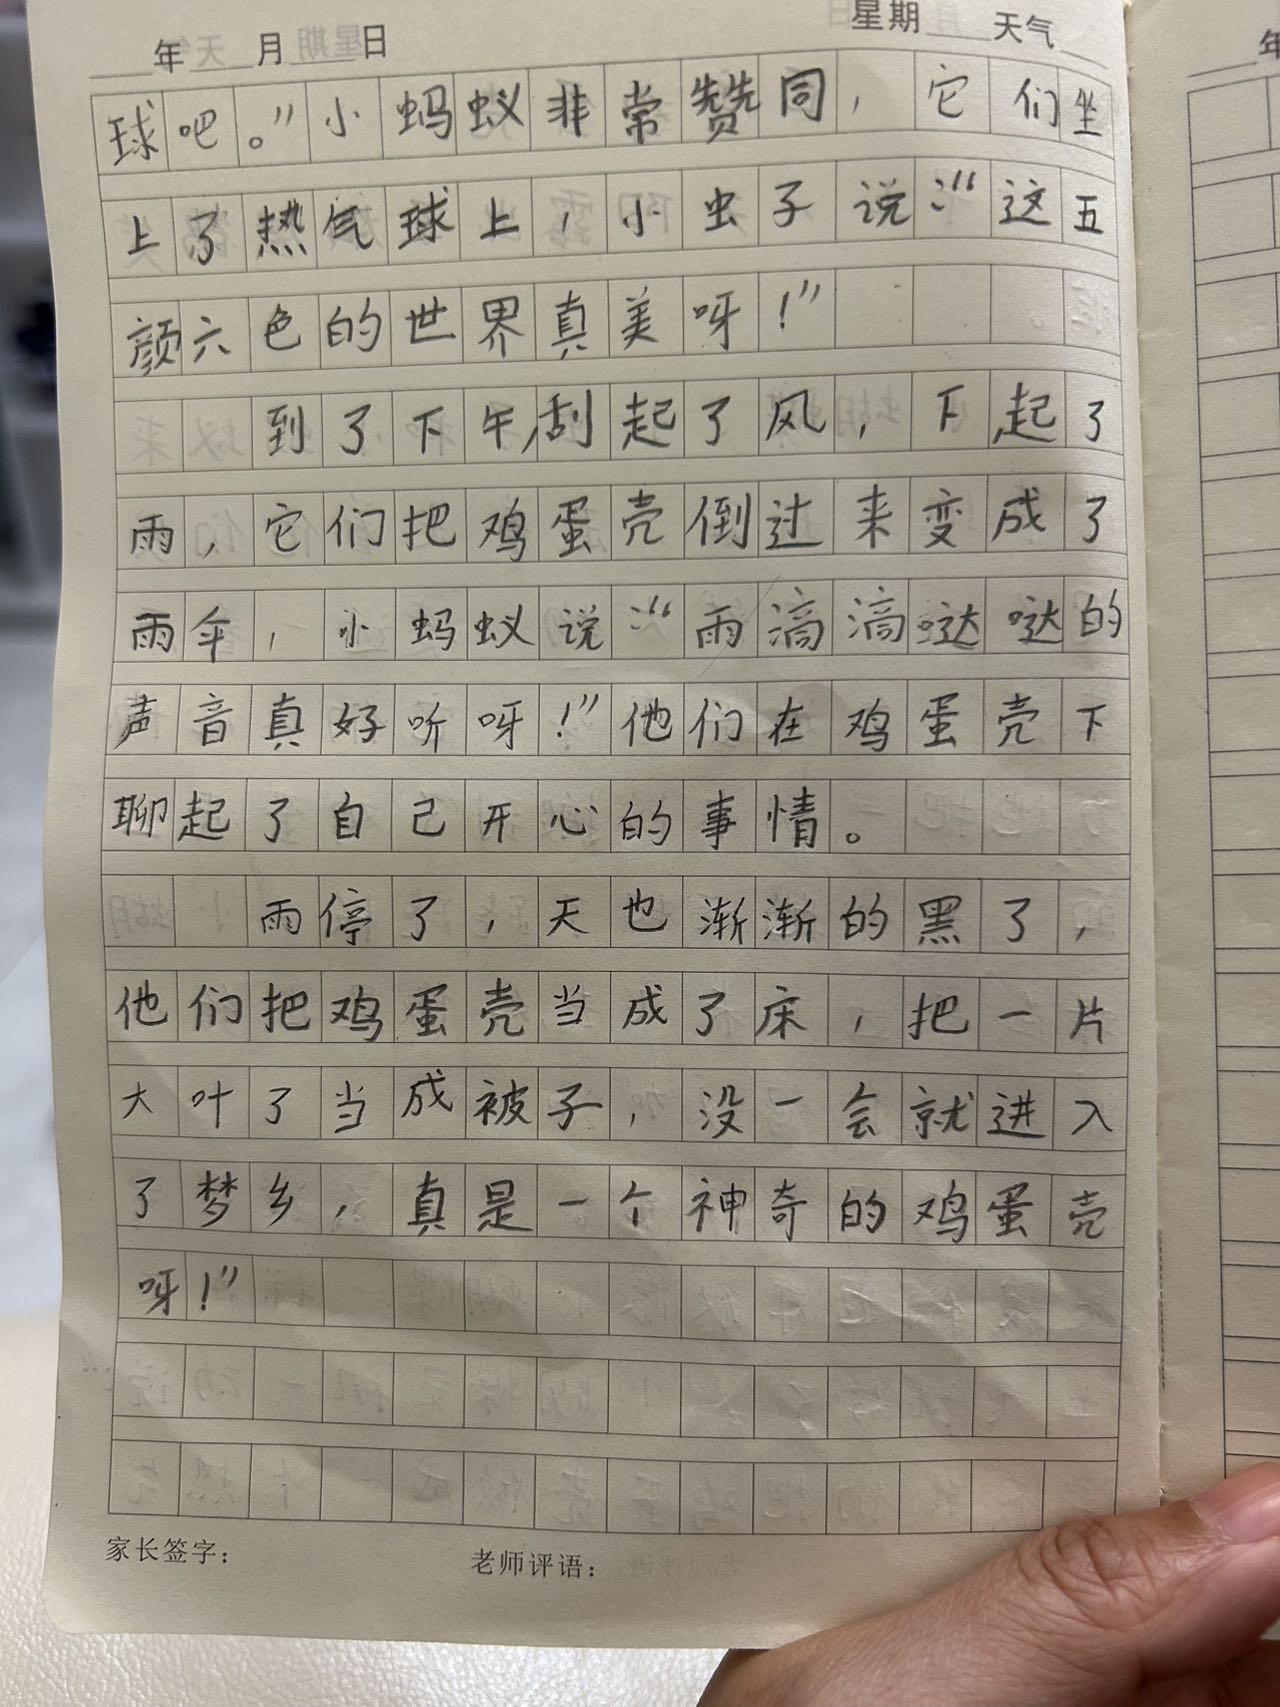 年 月 日 星期 天气
球吧。”小蚂蚁非常赞同，它们坐
上了热气球上，小虫子说：“这五
颜六色的世界真美呀！”
到了下午,刮起了风，下起了
雨，它们把鸡蛋壳倒过来变成了
雨伞，小蚂蚁说：“雨滴滴哒哒的
声音真好听呀！”他们在鸡蛋壳下
聊起了自己开心的事情。
雨停了，天也渐渐的黑了，
他们把鸡蛋壳当成了床，把一片
大叶了当成被子，没一会就进入
了梦乡，真是一个神奇的鸡蛋壳
呀！”
家长签字： 老师评语：